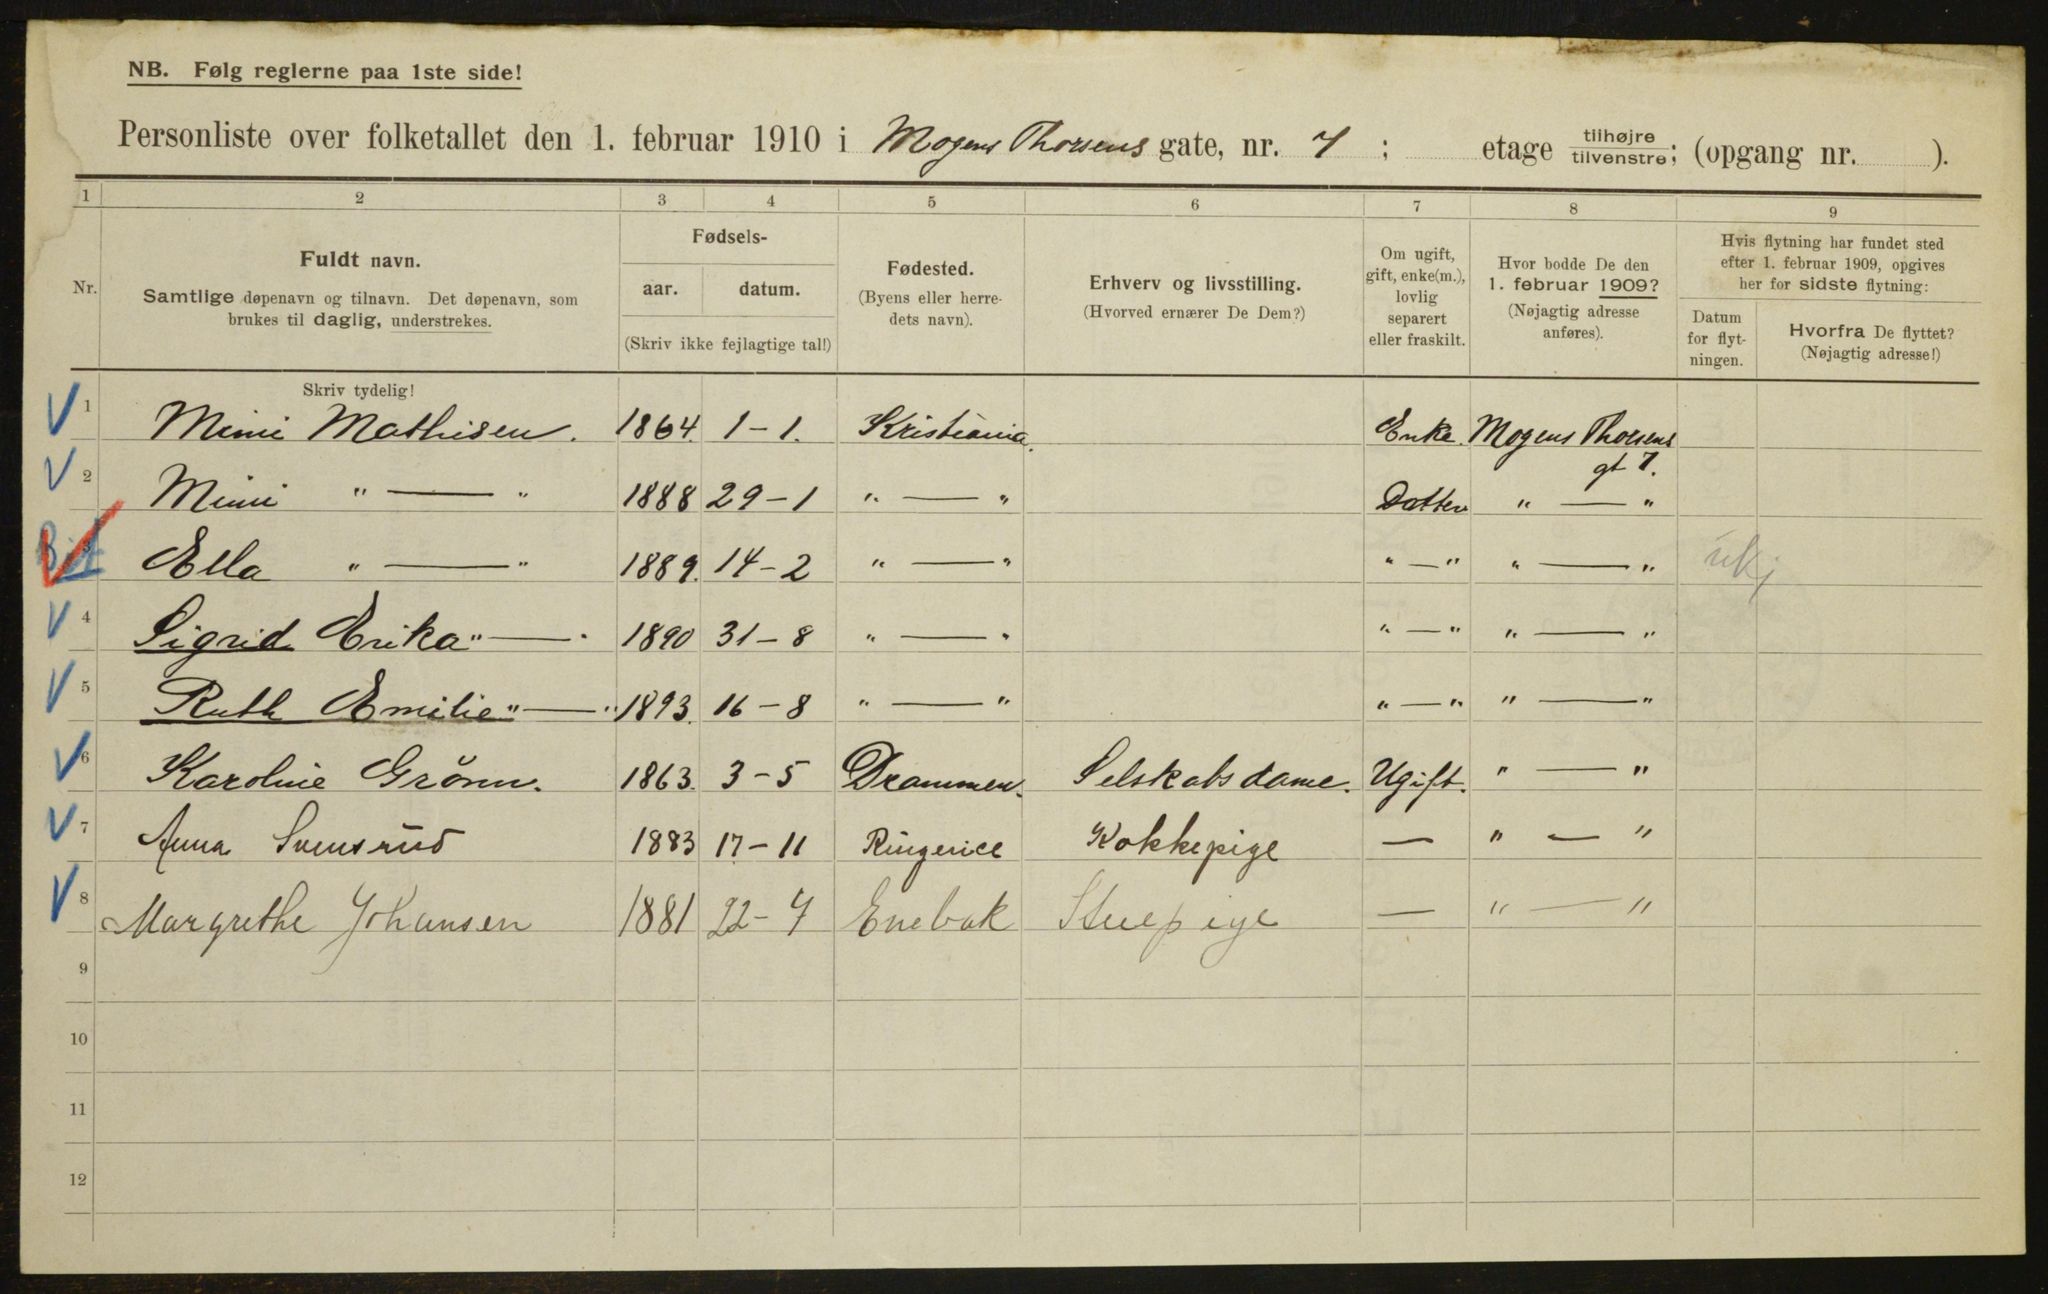 NB. Følg reglerne paa 1ste side!
Personliste over folketallet den 1. februar 1910 i Mogens Thorsens gate, nr. 7 ; etage tilhøjre tilvenstre; (opgang nr. ).
1 2 3 4 5 6 7 8 9
Nr.
Fuldt navn.
Samtlige døpenavn og tilnavn. Det døpenavn, som
brukes til daglig, understrekes.
Fødsels-
aar. datum.
(Skriv ikke fejlagtige tal!)
Fødested.
(Byens eller herre-
dets navn).
Erhverv og livsstilling.
(Hvorved ernærer De Dem?)
Om ugift,
gift, enke(m.),
lovlig
separert
eller fraskilt.
Hvor bodde De den
1. februar 1909?
(Nøjagtig adresse
anføres).
Hvis flytning har fundet sted
efter 1. februar 1909, opgives
her for sidste flytning:
Datum
for flyt-
ningen.
Hvorfra De flyttet?
(Nøjagtig adresse!)
Skriv tydelig!
V 1 Mimi Mathisen. 1864. 1-1. Kristiania. Enke. Mogens Thorsens
gt 7.
V 2 Mimi " — " 1888 29-1 " — " Datter " — "
3 Ella " — " 1889. 14-2 " — " " — " " — "
V 4 Sigrid Erika " — " 1890 31-8 " — " " — " " — "
V 5 Ruth Emilie " — " 1893. 16-8 " — " " — " " — "
V 6 Karoline Grönn. 1863. 3-5 Drammen. Selskabsdame. Ugift. " — "
V 7 Anna Svensrud 1883 17-11 Ringerice Kokkepige — " — "
V 8 Margrethe Johansen 1881 22-7 Enebak Stuepige — " — "
9
10
11
12